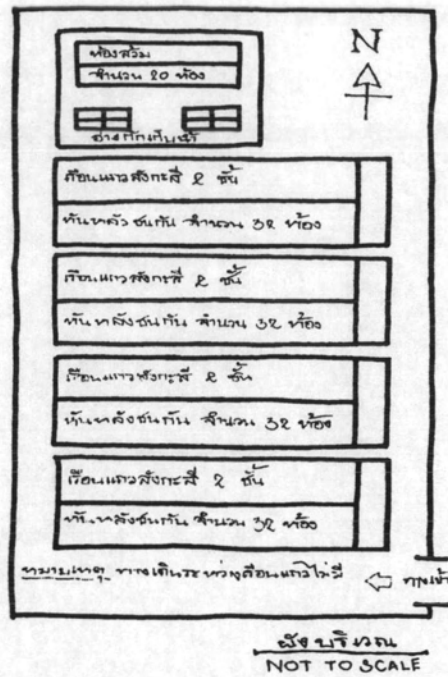 ห้องส้วม
จำนวน 20 ห้อง
N
อ่างกักเก็บน้ำ
เรือนแถวสังกะสี 2 ชั้น
หันหลังชนกัน จำนวน 32 ห้อง
เรือนแถวสังกะสี 2 ชั้น
หันหลังชนกัน จำนวน 32 ห้อง
เรือนแถวสังกะสี 2 ชั้น
หันหลังชนกัน จำนวน 32 ห้อง
เรือนแถวสังกะสี 2 ชั้น
หันหลังชนกัน จำนวน 32 ห้อง
หมายเหตุ ทางเดินระหว่างเรือนแถวไม่มี
ทางเข้า
ผังบริเวณ
NOT TO SCALE